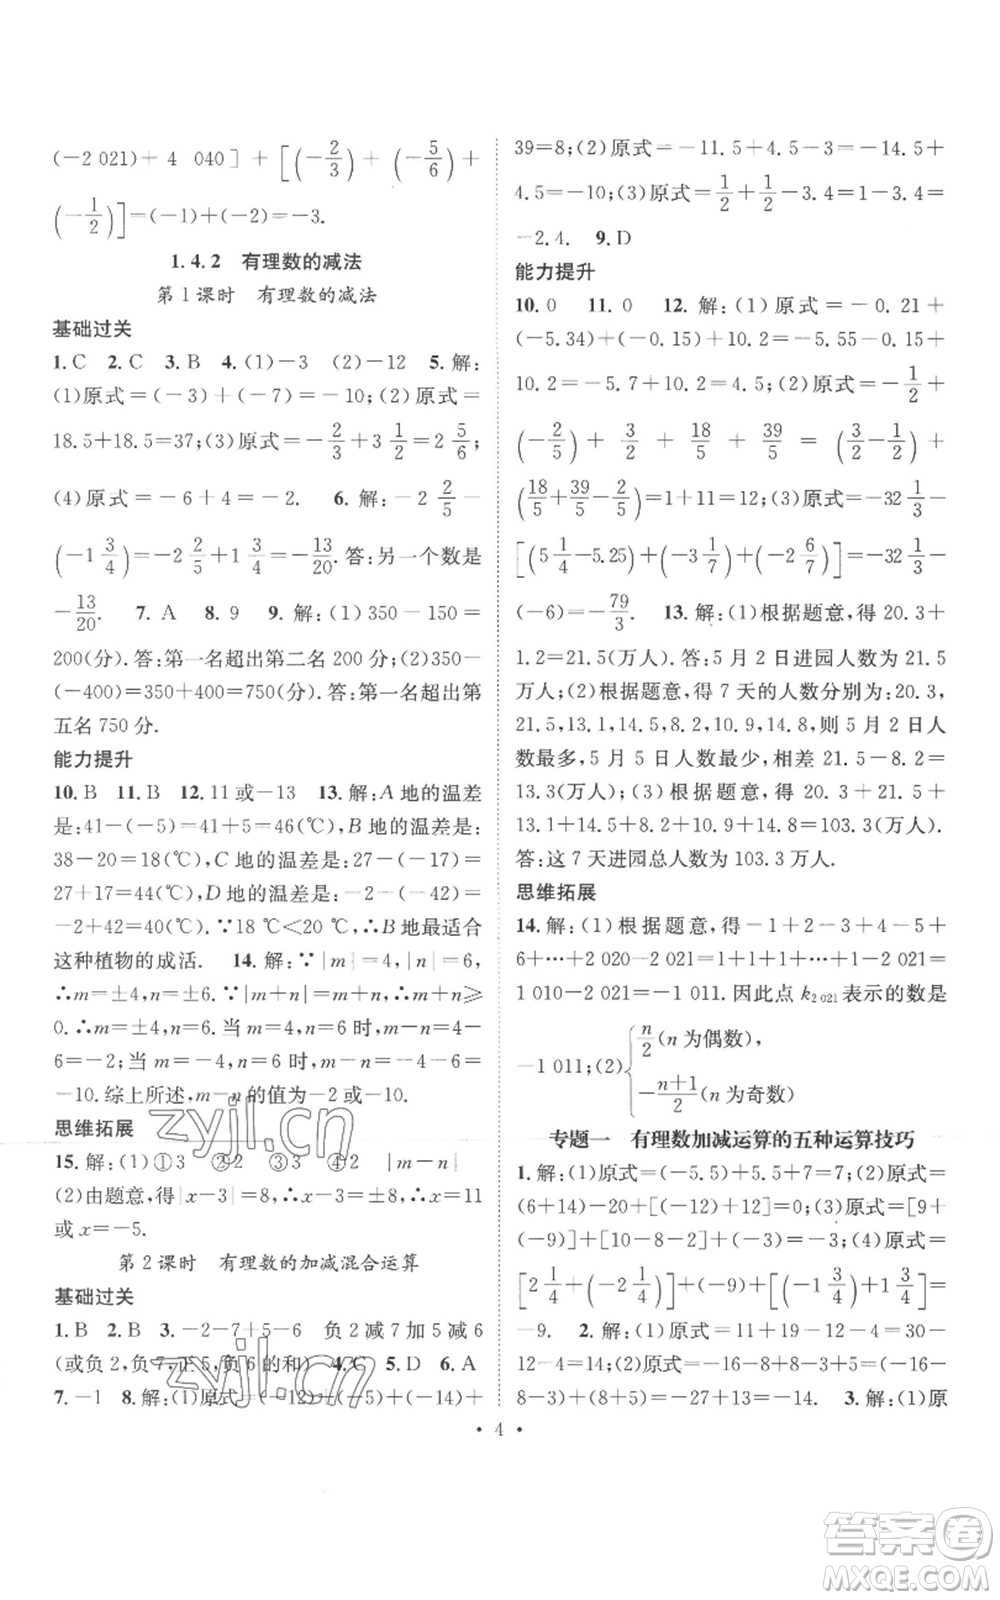 (-2 021)+4 040]+[(-2/3)+(-5/6)+
(-1/2)]=(-1)+(-2)=-3.
1.4.2 有理数的减法
第1课时 有理数的减法
基础过关
1.C 2.C 3.B 4.(1)-3 (2)-12 5.解:
(1)原式=(-3)+(-7)=-10;(2)原式=
18.5+18.5=37;(3)原式=-2/3+3 1/2=2 5/6;
(4)原式=-6+4=-2. 6.解:-2 2/5-
(-1 3/4)=-2 2/5+1 3/4=-13/20.答:另一个数是
-13/20. 7.A 8.9 9.解:(1)350-150=
200(分).答:第一名超出第二名200分;(2)350-
(-400)=350+400=750(分).答:第一名超出第
五名750分.
能力提升
10.B 11.B 12.11或-13 13.解:A地的温差
是:41-(-5)=41+5=46(℃),B地的温差是:
38-20=18(℃),C地的温差是:27-(-17)=
27+17=44(℃),D地的温差是:-2-(-42)=
-2+42=40(℃).∵18℃<20℃,∴B地最适合
这种植物的成活. 14.解:∵|m|=4,|n|=6,
∴m=±4,n=±6.∵|m+n|=m+n,∴m+n≥
0.∴m=±4,n=6.当m=4,n=6时,m-n=4-
6=-2;当m=-4,n=6时,m-n=-4-6=
-10.综上所述,m-n的值为-2或-10.
思维拓展
15.解:(1)①3 ②3 ③2 ④5 |m-n|
(2)由题意,得|x-3|=8,∴x-3=±8,∴x=11
或x=-5.
第2课时 有理数的加减混合运算
基础过关
1.B 2.B 3.-2-7+5-6 负2减7加5减6
(或负2,负7,正5,负6的和) 4.C 5.D 6.A
7.-1 8.解:(1)原式=(-12)+(-5)+(-14)+
39=8;(2)原式=-11.5+4.5-3=-14.5+
4.5=-10;(3)原式=1/2+1/2-3.4=1-3.4=
-2.4. 9.D
能力提升
10.0 11.0 12.解:(1)原式=-0.21+
(-5.34)+(-0.15)+10.2=-5.55-0.15+
10.2=-5.7+10.2=4.5;(2)原式=-1/2+
(-2/5)+3/2+18/5+39/5=(3/2-1/2)+
(18/5+39/5-2/5)=1+11=12;(3)原式=-32 1/3-
[(5 1/4-5.25)+(-3 1/7)+(-2 6/7)]=-32 1/3-
(-6)=-79/3. 13.解:(1)根据题意,得20.3+
1.2=21.5(万人).答:5月2日进园人数为21.5
万人;(2)根据题意,得7天的人数分别为:20.3,
21.5,13.1,14.5,8.2,10.5,15.2,则5月2日人
数最多,5月5日人数最少,相差21.5-8.2=
13.3(万人);(3)根据题意,得20.3+21.5+
13.1+14.5+8.2+10.5+15.2=103.3(万人).
答:这7天进园总人数为103.3万人.
思维拓展
14.解:(1)根据题意,得-1+2-3+4-5+
6+…+2 020-2 021=1+1+1+…+1-2 021=
1 010-2 021=-1 011.因此点k2 021表示的数是
-1 011;(2){n/2(n为偶数),
-n+1/2(n为奇数)
专题一 有理数加减运算的五种运算技巧
1.解:(1)原式=(-5.5)+5.5+7=7;(2)原式=
(6+14)-20+[(-12)+12]=0;(3)原式=[9+
(-9)]+[10-8+(-2)]=0+0=0;(4)原式=
[2 1/4+(-2 1/4)]+(-9)+[(-1 3/4)+1 3/4]=
-9. 2.解:(1)原式=11+19-10-6=30-
16=14;(2)原式=-16-8-3+13=(-16-
8-3)+(13)=-27+13=-14. 3.解:(1)原
· 4 ·
zyjl.cn
zyjl.cn
答案圈
MXQE.COM